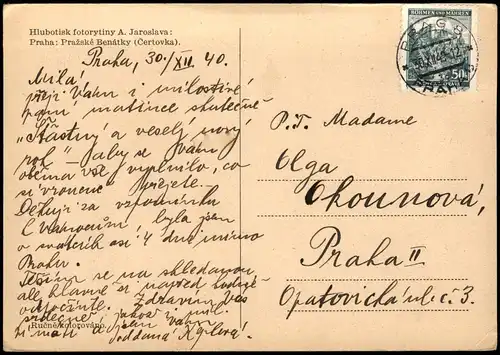 Hlubotisk fotorytiny A. Jaroslava:
Praha: Pražské Benátky (Čertovka).
Praha, 30./XII. 40.
Milá!
přeji Vám i milostivé
paní matince skutečně
"Šťastný a veselý nový
rok" – jak by se Vám
oběma vše vyplnilo, co
si vroucně přejete.
Děkuji za vzpomínku
k Vánocům, byla jsem
o svátcích asi 4 dni mimo
Prahu.
Těším se na shledanou
ale hlavně si napřed
odpočiňte. Zdravím Vás
srdečně jakož i mil.
oddaná
Ručně kolorováno.
BÖHMEN UND MÄHREN
50
PRAG 8
PRAHA
P.T. Madame
Olga
Okounová,
Praha II
Opatovická ulč. č. 3.